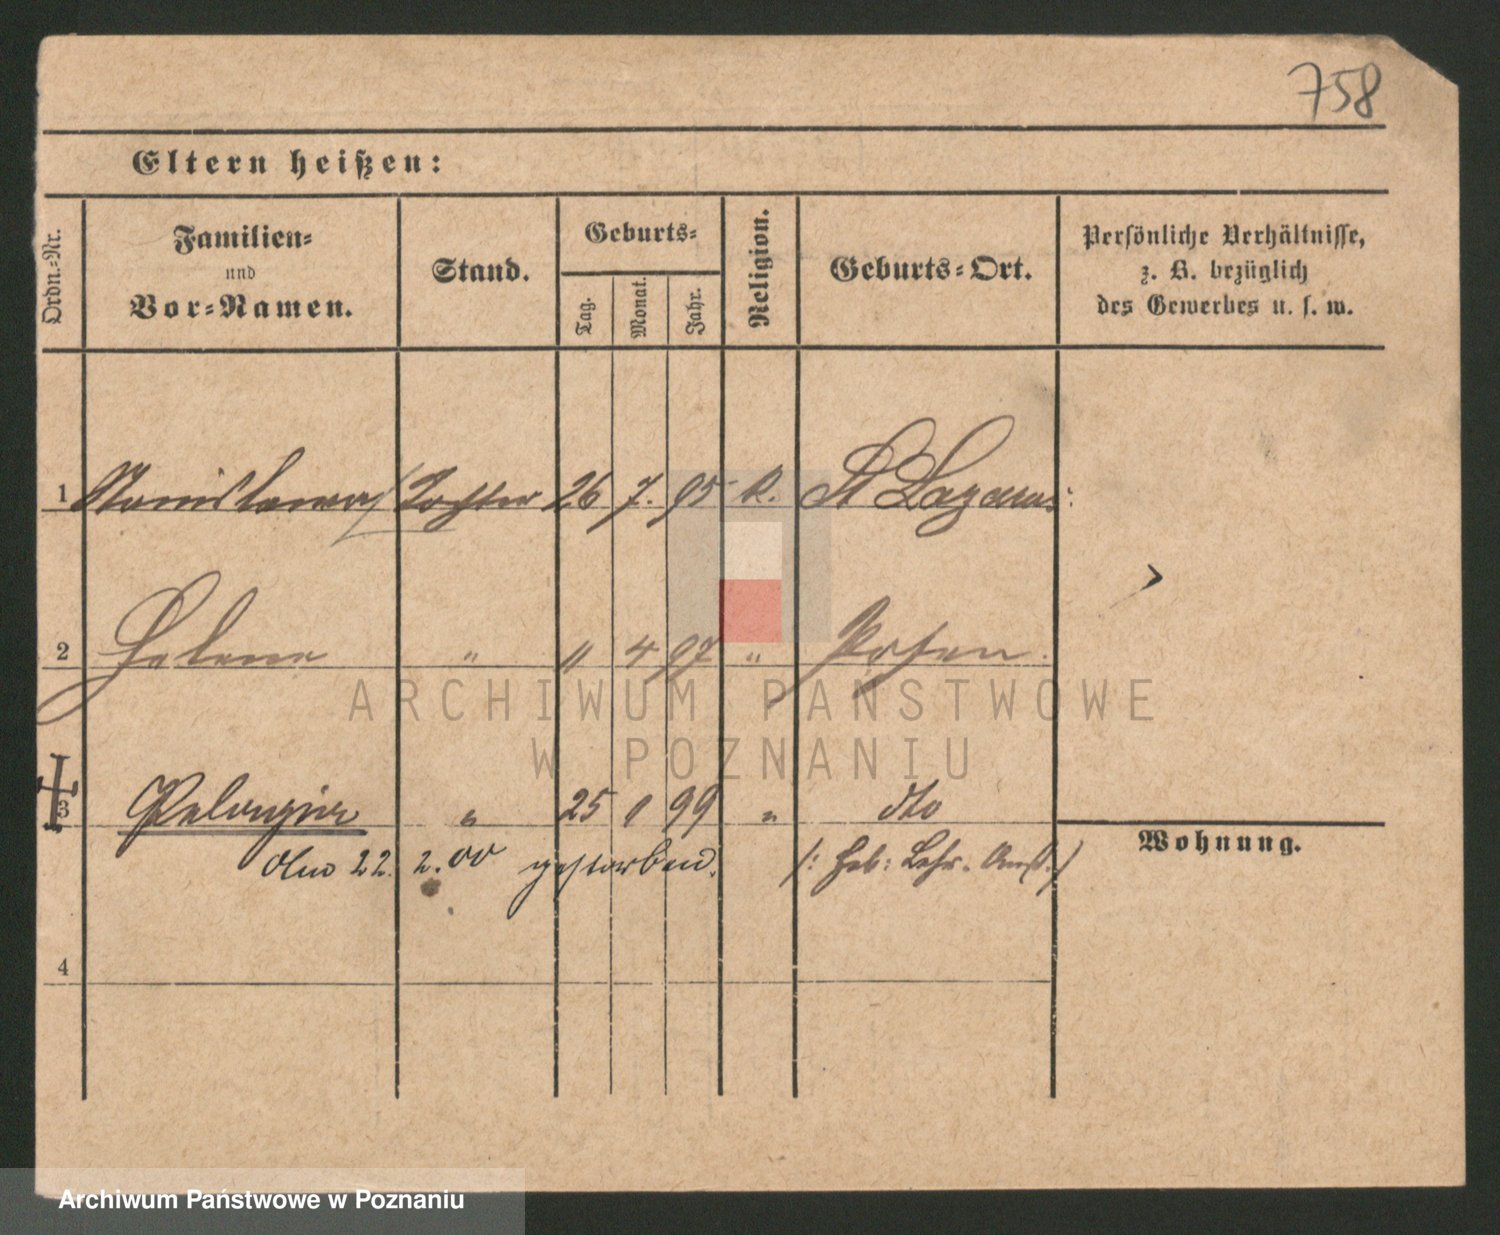 758
Eltern heißen:
Ordn.-Nr.
Familien-
und
Vor-Namen.
Stand.
Geburts-
Tag.
Monat.
Jahr.
Religion.
Geburts-Ort.
Persönliche Verhältnisse,
z. B. bezüglich
des Gewerbes u. s. w.
1 Stanislawa Tochter 26 7. 95 K. St Lazarus
2 Helene " 11 4 97 " Posen.
3 Pelagia " 25 1 99 " dto
22. 2. 00 gestorben. /: Heb: Lehr. Anst. /
Wohnung.
4
ARCHIWUM PAŃSTWOWE
W POZNANIU
Archiwum Państwowe w Poznaniu